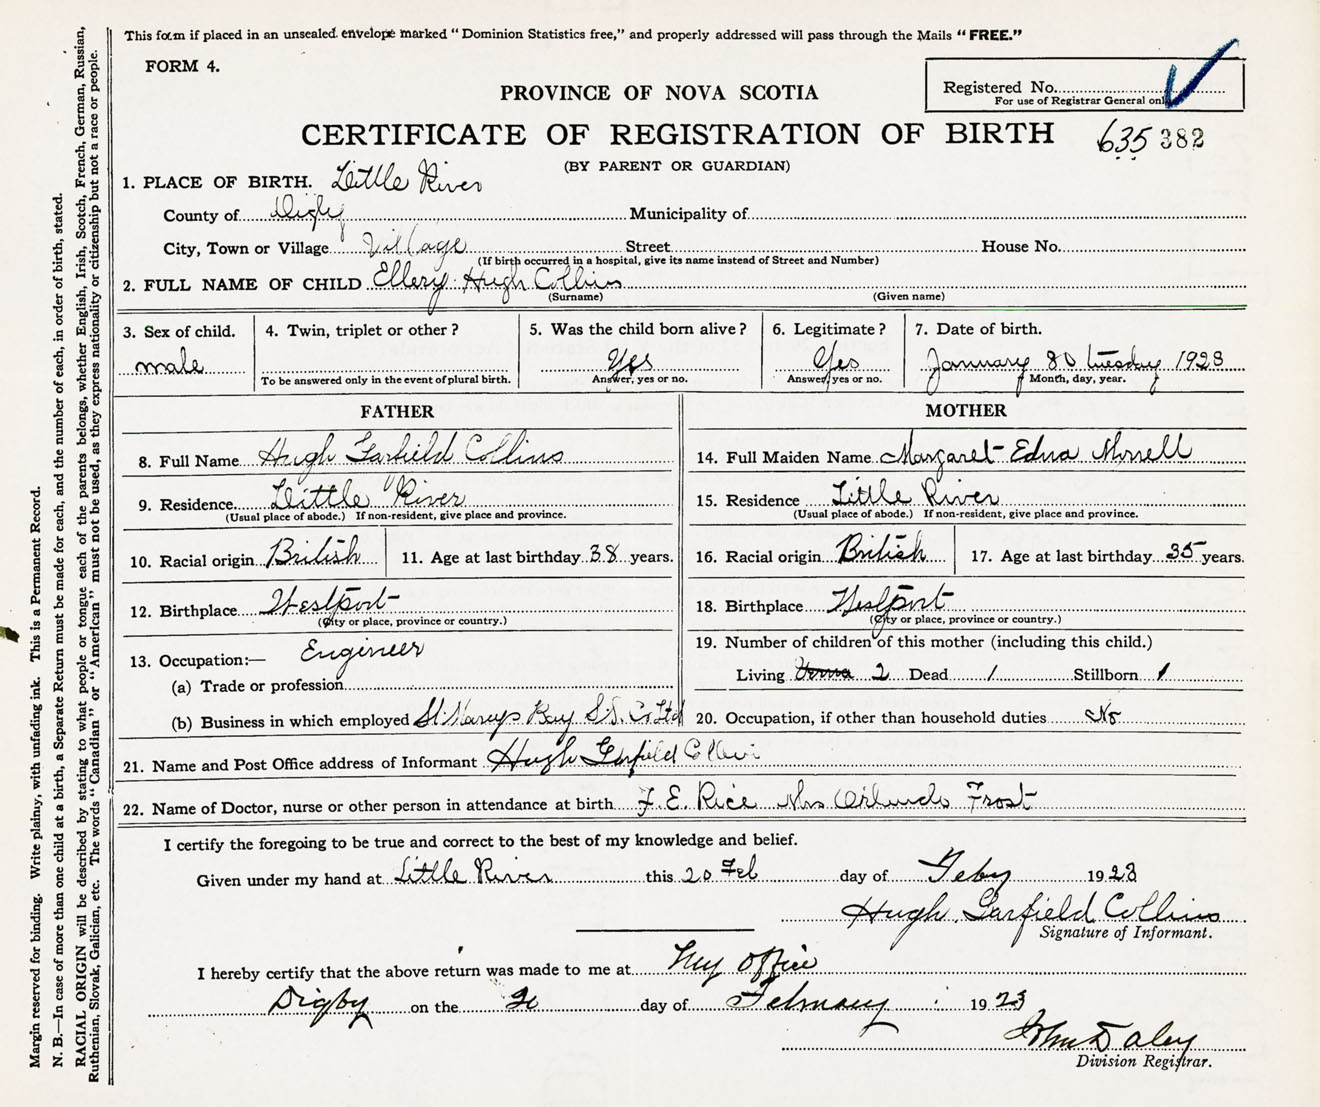 This form if placed in an unsealed envelope marked "Dominion Statistics free," and properly addressed will pass through the Mails "FREE."
FORM 4.
Registered No.
For use of Registrar General only
PROVINCE OF NOVA SCOTIA
CERTIFICATE OF REGISTRATION OF BIRTH 635 382
(BY PARENT OR GUARDIAN)
1. PLACE OF BIRTH. Little River
County of Digby Municipality of
City, Town or Village Village Street House No.
(If birth occurred in a hospital, give its name instead of Street and Number)
2. FULL NAME OF CHILD Ellery Hugh Collins
(Surname) (Given name)
3. Sex of child. 4. Twin, triplet or other? 5. Was the child born alive? 6. Legitimate? 7. Date of birth.
male Yes Yes January 30 tuesday 1923
To be answered only in the event of plural birth. Answer, yes or no. Answer, yes or no. Month, day, year.
FATHER MOTHER
8. Full Name Hugh Garfield Collins 14. Full Maiden Name Margaret Edna Morrell
9. Residence Little River 15. Residence Little River
(Usual place of abode.) If non-resident, give place and province. (Usual place of abode.) If non-resident, give place and province.
10. Racial origin British 11. Age at last birthday 38 years. 16. Racial origin British 17. Age at last birthday 35 years.
12. Birthplace Westport 18. Birthplace Westport
(City or place, province or country.) (City or place, province or country.)
13. Occupation:— Engineer 19. Number of children of this mother (including this child.)
(a) Trade or profession Living 2 Dead 1 Stillborn 1
(b) Business in which employed St Marys Bay S.S. Co Ltd 20. Occupation, if other than household duties No
21. Name and Post Office address of Informant Hugh Garfield Collins
22. Name of Doctor, nurse or other person in attendance at birth F. E. Rice Mrs Orlando Frost
I certify the foregoing to be true and correct to the best of my knowledge and belief.
Given under my hand at Little River this 20 Feb day of Feby 1923
Hugh Garfield Collins
Signature of Informant.
I hereby certify that the above return was made to me at My office
Digby on the 20 day of February 1923
John Daley
Division Registrar.
Margin reserved for binding. Write plainly, with unfading ink. This is a Permanent Record.
N. B.—In case of more than one child at a birth, a Separate Return must be made for each, and the number of each, in order of birth, stated.
RACIAL ORIGIN will be described by stating to what people or tongue each of the parents belongs, whether English, Irish, Scotch, French, German, Russian,
Ruthenian, Slovak, Galician, etc. The words "Canadian" or "American" must not be used, as they express nationality or citizenship but not a race or people.